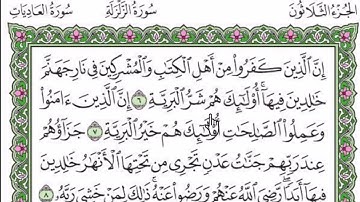 الجزء الثلاثون سورة الزلزلة سورة العاديات
إِنَّ ٱلَّذِينَ كَفَرُوا۟ مِنْ أَهْلِ ٱلْكِتَـٰبِ وَٱلْمُشْرِكِينَ فِى نَارِ جَهَنَّمَ
خَـٰلِدِينَ فِيهَآ ۚ أُو۟لَـٰٓئِكَ هُمْ شَرُّ ٱلْبَرِيَّةِ ٦ إِنَّ ٱلَّذِينَ ءَامَنُوا۟
وَعَمِلُوا۟ ٱلصَّـٰلِحَـٰتِ أُو۟لَـٰٓئِكَ هُمْ خَيْرُ ٱلْبَرِيَّةِ ٧ جَزَآؤُهُمْ
عِندَ رَبِّهِمْ جَنَّـٰتُ عَدْنٍ تَجْرِى مِن تَحْتِهَا ٱلْأَنْهَـٰرُ خَـٰلِدِينَ
فِيهَآ أَبَدًا ۖ رَّضِىَ ٱللَّهُ عَنْهُمْ وَرَضُوا۟ عَنْهُ ۚ ذَٰلِكَ لِمَنْ خَشِىَ رَبَّهُۥ ٨